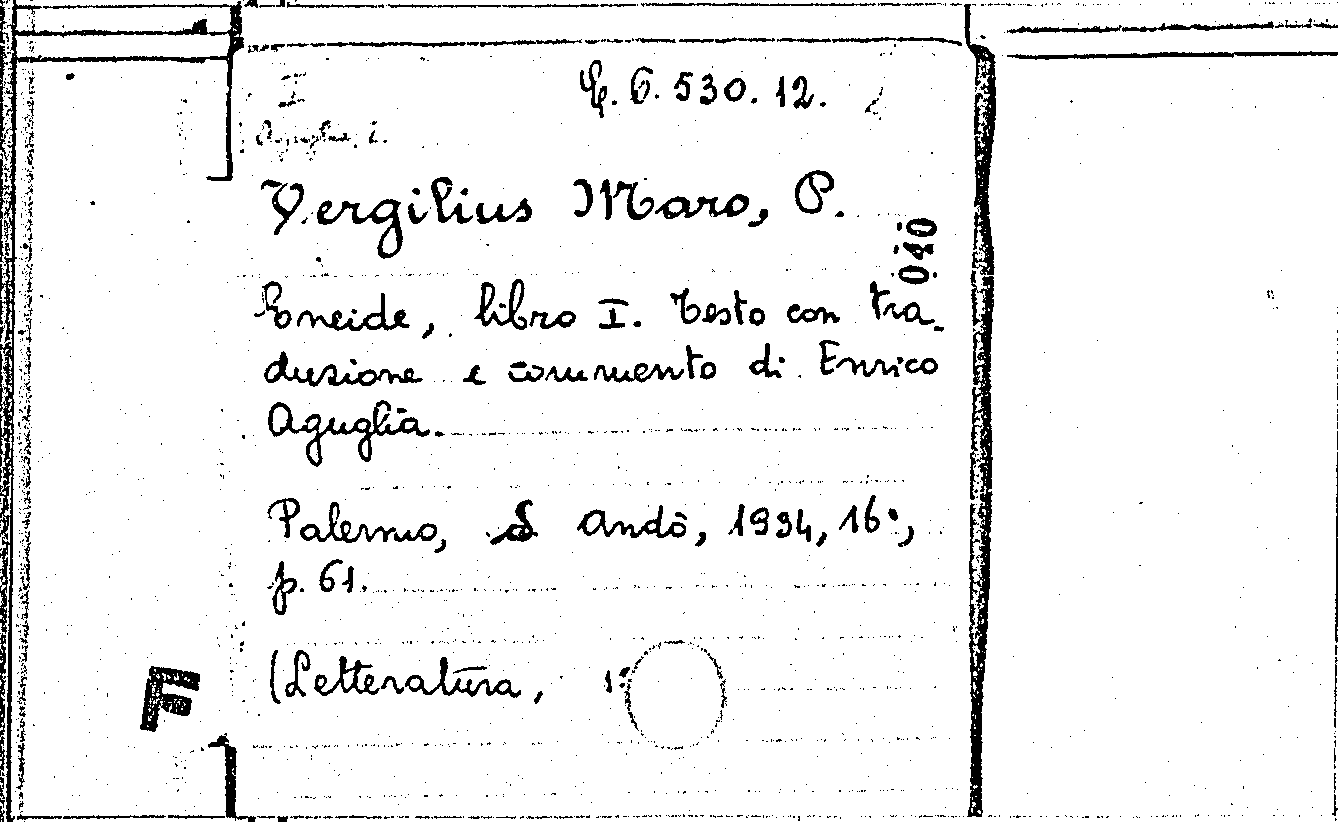 I
C. 6. 530. 12.
Aguglia, E.
Vergilius Maro, P.
040
Eneide, libro I. Testo con tra-
duzione e commento di Enrico
Aguglia.
Palermo, Andò, 1934, 16°,
p. 61.
(Letteratura,
F